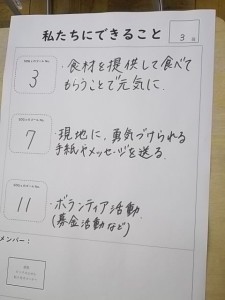 私たちにできること
3
3
・食材を提供して食べて
もらうことで元気に
7
・現地に、勇気づけられる
手紙やメッセージを送る
11
・ボランティア活動
(募金活動など)
メンバー：